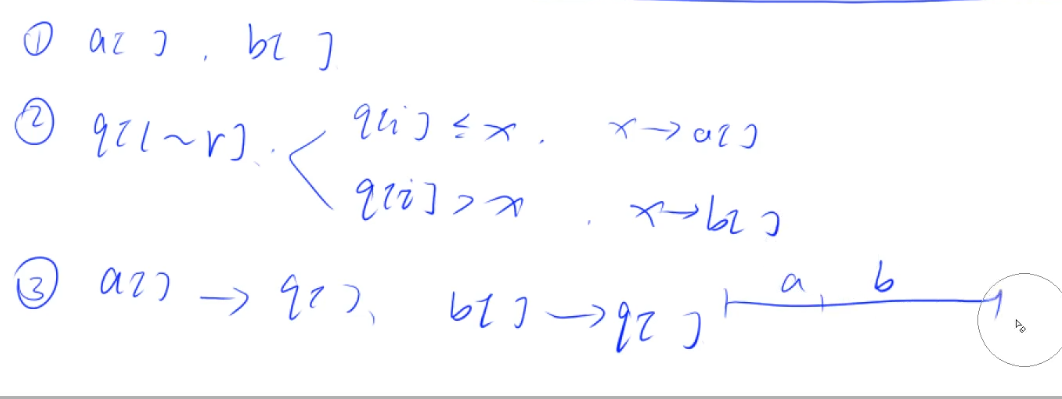 ① a[ ], b[ ]
② q[l~r].
q[i] ≤ x. x→a[ ]
q[i] > x. x→b[ ]
③ a[ ] → q[ ], b[ ] → q[ ]
a b